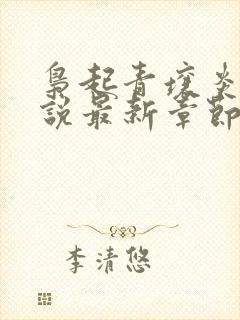 枭起青壤炎
说最新章节
李清悠